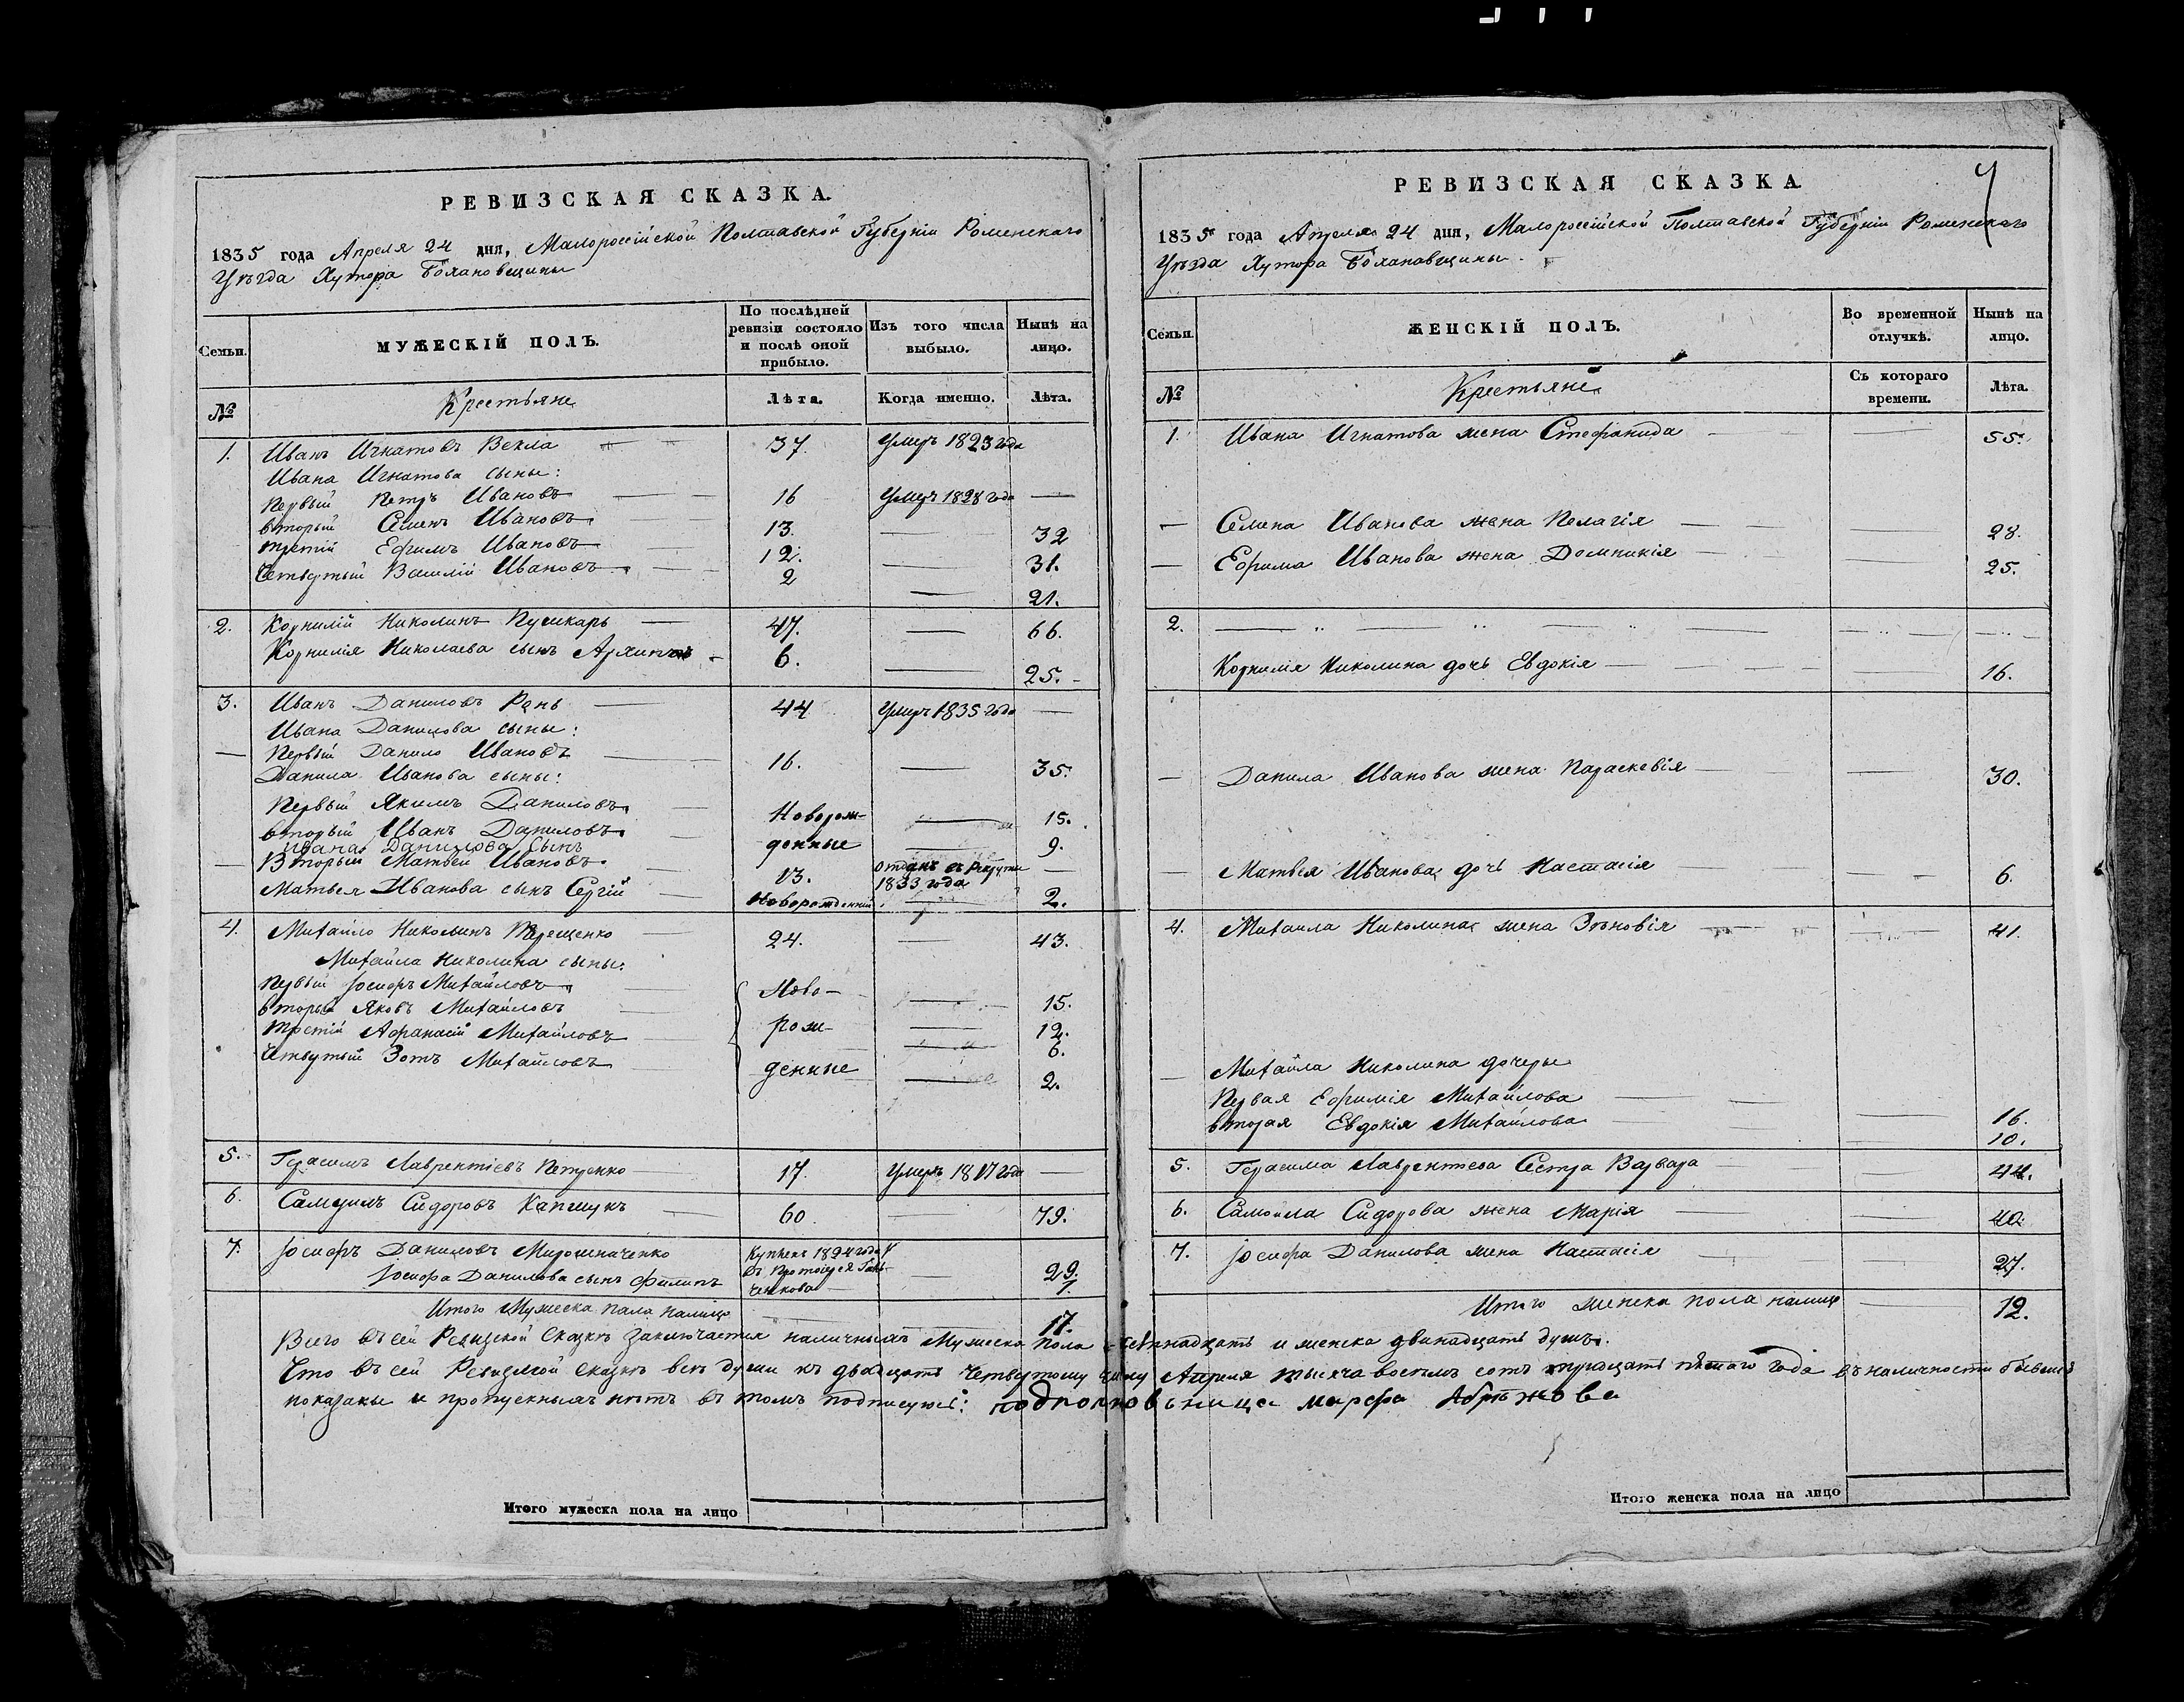 РЕВИЗСКАЯ СКАЗКА.
1835 года Апреля 24 дня, Малороссійской Полтавской Губерніи Роменскаго
Уѣзда Хутора Бохановщины
Семьи.
МУЖЕСКІЙ ПОЛЪ.
По послѣдней
ревизіи состояло
и послѣ оной
прибыло.
Изъ того числа
выбыло.
Нынѣ на
лицо.
№
Крестьяне
Лѣта.
Когда именно.
Лѣта.
1. Иванъ Игнатовъ Векла 37. Умеръ 1823 года
Ивана Игнатова сыны:
Первый Петръ Ивановъ 16 Умеръ 1828 года
вторый Семенъ Ивановъ 13. 32
третій Ефимъ Ивановъ 12. 31.
Четвертый Василій Ивановъ 2 21.
2. Корнилій Николинъ Пушкарь 47. 66.
Корнилія Николаева сынъ Архипъ 6. 25.
3. Иванъ Даниловъ Рень 44 Умеръ 1835 года
Ивана Данилова сыны:
Первый Данило Ивановъ 16. 35.
Данила Иванова сыны:
Первый Якимъ Даниловъ Новорож- 15.
вторый Иванъ Даниловъ денные 9.
Ивана Данилова сынъ
Вторый Матвей Ивановъ 13. Отданъ въ рекруты 1833 года
Матвея Иванова сынъ Сергій Новорожденній 2.
4. Михайло Николинъ Терещенко 24. 43.
Михайла Николина сыны:
Первый Іосифъ Михайловъ Ново- 15.
вторый Яковъ Михайловъ рож- 12.
третій Афанасій Михайловъ 6.
Четвертый Зотъ Михайловъ денные 2.
5. Герасимъ Лаврентіевъ Петренко 17. Умеръ 1817 года
6. Самуилъ Сидоровъ Капшукъ 60. 79.
7. Іосифъ Даниловъ Мирошниченко Купленъ 1824 года у 29.
Іосифа Данилова сынъ Филипъ 1.
Итого Мужеска пола налицо 17.
Итого мужеска пола на лицо
РЕВИЗСКАЯ СКАЗКА.
1835 года Апреля 24 дня, Малороссійской Полтавской Губерніи Роменскаго
Уѣзда Хутора Бохановщины.
Семьи.
ЖЕНСКІЙ ПОЛЪ.
Во временной
отлучкѣ.
Нынѣ на
лицо.
№
Крестьяне
Съ котораго
времени.
Лѣта.
1. Ивана Игнатова жена Стефанида 55.
Семена Иванова жена Пелагія 28.
Ефима Иванова жена Домникія 25.
2.
Корнилія Николина дочь Евдокія 16.
Данила Иванова жена Параскевія 30.
Матвея Иванова дочь Настасія 6.
4. Михаила Николина жена Зѣновія 41.
Михайла Николина дочеры
Первая Ефимія Михайлова 16.
вторая Евдокія Михайлова 10.
5. Герасима Лаврентіева Сестра Варвара 44.
6. Самойла Сидорова жена Марія 40.
7. Іосифа Данилова жена Настасія 27.
Итого женска пола налицо 12.
Всего въ сей Ревизской Сказкѣ заключается наличныхъ Мужеска пола семнадцать и женска двинадцать душъ.
Что въ сей Ревизской Сказкѣ всѣ души къ двадцать четвертому числу Апреля тысяча восемъ сотъ тридцать пятаго года въ наличности бывшія
показаны и пропускныхъ нѣтъ въ томъ подписуюсь: подполковница марфа
Итого женска пола на лицо